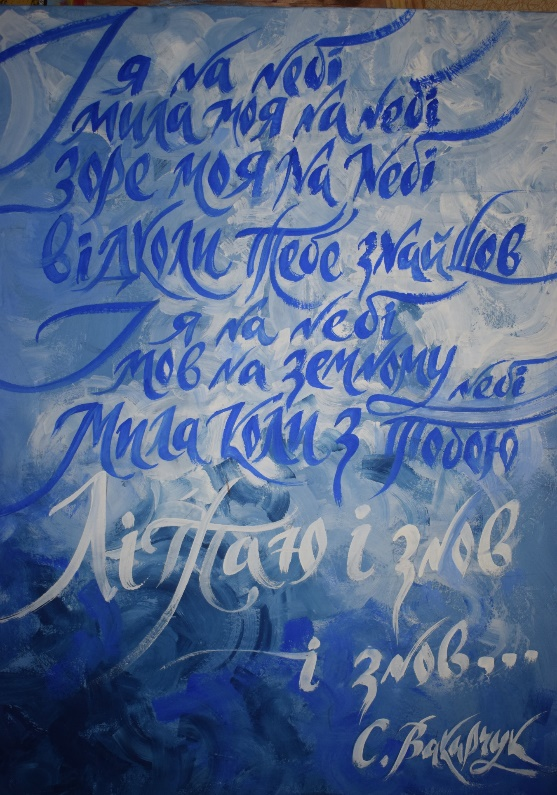 І я на небі
мила моя на небі
Зоре моя на небі
відколи Тебе знайшов
І я на небі
мов на земному небі
Мила коли з Тобою
Літаю і знов
і знов...
С. Вакарчук